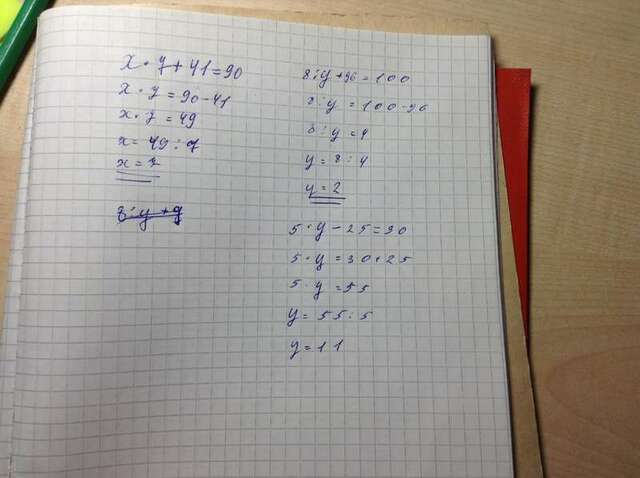 x · 7 + 41 = 90
x · 7 = 90 - 41
x · 7 = 49
x = 49 : 7
x = 7
8 : y + 9
8 : y + 96 = 100
8 : y = 100 - 96
8 : y = 4
y = 8 : 4
y = 2
5 · y - 25 = 30
5 · y = 30 + 25
5 · y = 55
y = 55 : 5
y = 11